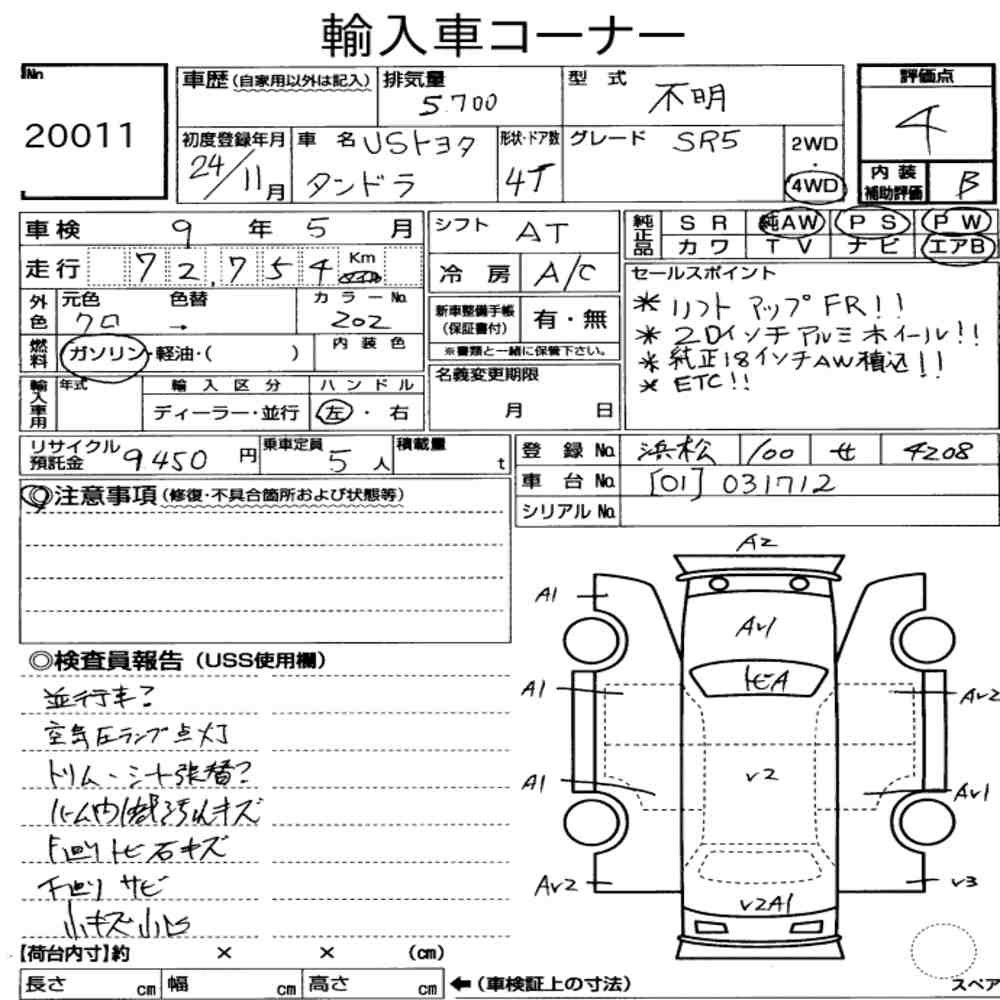 輸入車コーナー
No. 20011
車歴(自家用以外は記入) 排気量 5.700 型式 不明 評価点 4
初度登録年月 24/11月 車名 USトヨタ タンドラ 形状・ドア数 4T グレード SR5 2WD・4WD 内装補助評価 B
車検 9年5月 シフト AT 純正品 SR 純AW PS PW
カワ TV ナビ エアB
走行 72,754 Km 冷房 A/C
セールスポイント
外色 元色 クロ 色替 → カラーNo. 202 新車整備手帳(保証書付) 有・無
※書類と一緒に保管下さい。
* リフトアップFR!!
* 20インチアルミホイール!!
* 純正18インチAW積込!!
* ETC!!
燃料 ガソリン・軽油・( ) 内装色
輸入車用 年式 輸入区分 ディーラー・並行 ハンドル 左・右
名義変更期限 月 日
リサイクル預託金 9450円 乗車定員 5人 積載量 t
登録No. 浜松 100 せ 4208
車台No. [01]031712
シリアルNo.
◎注意事項(修復・不具合箇所および状態等)
◎検査員報告(USS使用欄)
並行車?
空気圧ランプ点灯
トリム・シート張替?
ルーム内1部汚れキズ
F廻り トビ石キズ
下廻り サビ
小キズ小凹
A2
A1
Av1
トビA
A1
Av2
v2
A1
Av1
Av2
v3
v2A1
【荷台内寸】約 × × (cm)
長さ cm 幅 cm 高さ cm ←(車検証上の寸法)
スペア